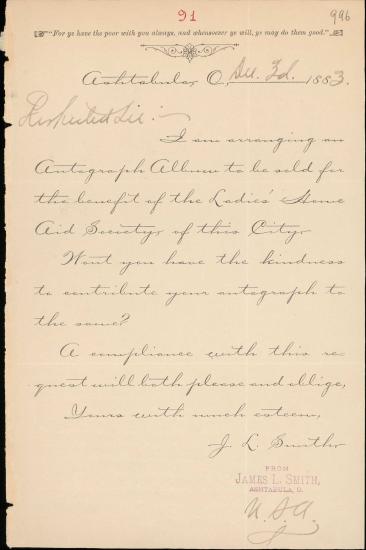 91
996
"For ye have the poor with you always, and whensoever ye will, ye may do them good."
Ashtabula, O., Dec. 3d. 1883.
Respected Sir:—
I am arranging an
Autograph Album to be sold for
the benefit of the Ladies' Home
Aid Society, of this City.
Wont you have the kindness
to contribute your autograph to
the same?
A compliance with this re-
quest will both please and oblige,
Yours with much esteem,
J. L. Smith
FROM
JAMES L. SMITH,
ASHTABULA, O.
U.S.A.